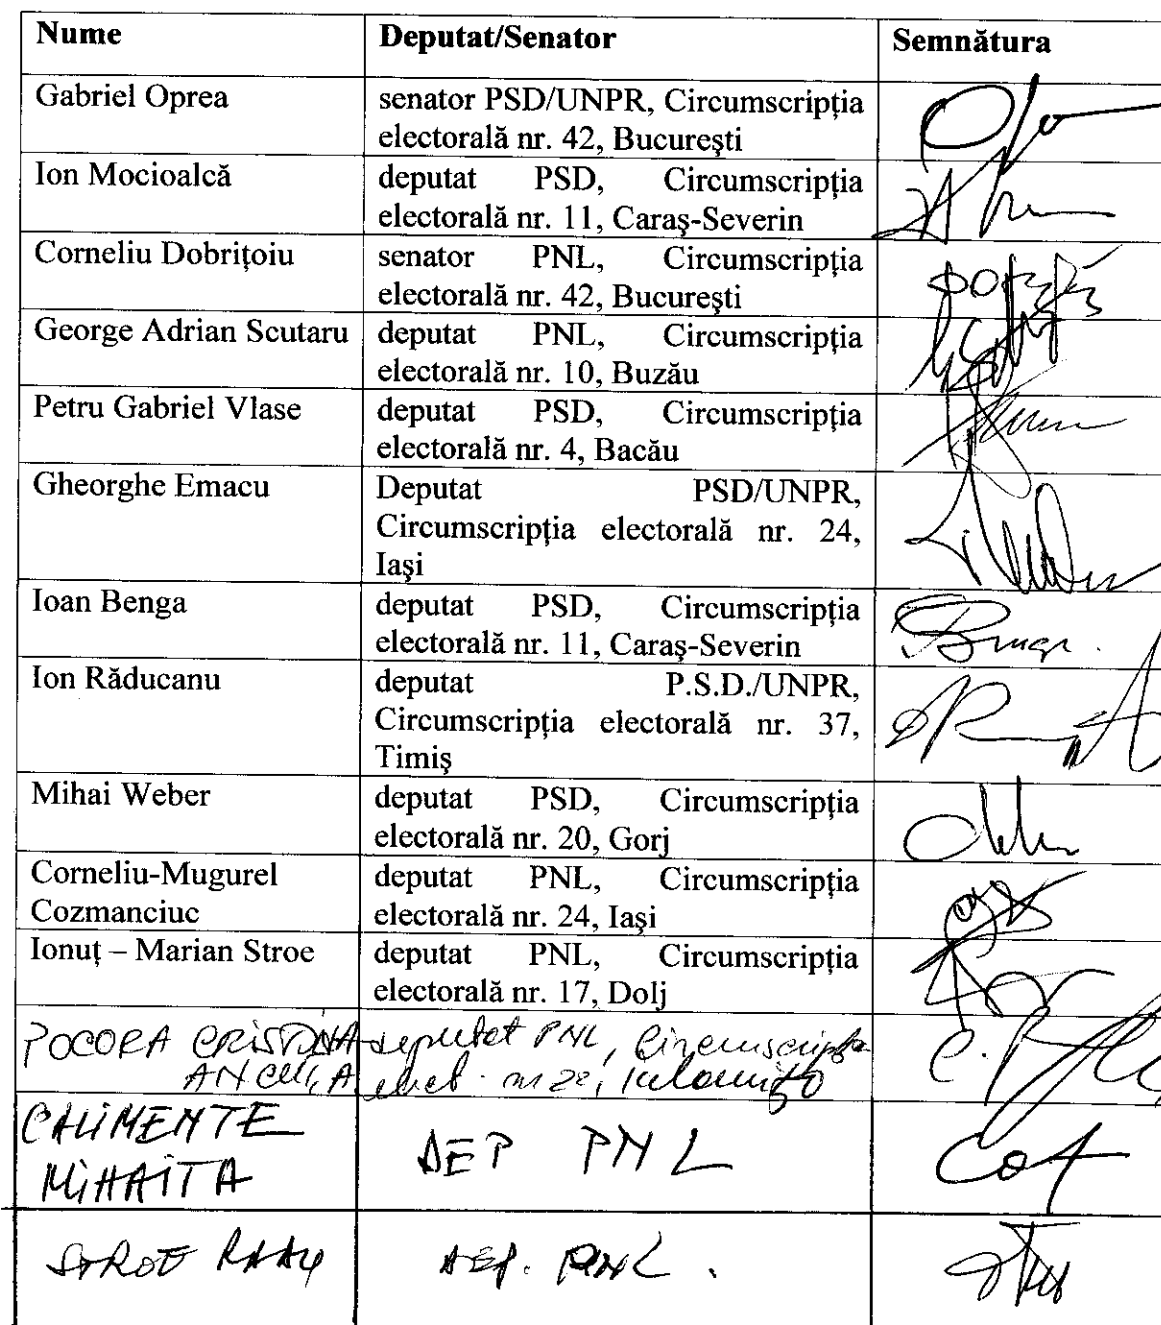 Nume Deputat/Senator Semnătura
Gabriel Oprea senator PSD/UNPR, Circumscripţia
electorală nr. 42, Bucureşti
Ion Mocioalcă deputat PSD, Circumscripţia
electorală nr. 11, Caraş-Severin
Corneliu Dobriţoiu senator PNL, Circumscripţia
electorală nr. 42, Bucureşti
George Adrian Scutaru deputat PNL, Circumscripţia
electorală nr. 10, Buzău
Petru Gabriel Vlase deputat PSD, Circumscripţia
electorală nr. 4, Bacău
Gheorghe Emacu Deputat PSD/UNPR,
Circumscripţia electorală nr. 24,
Iaşi
Ioan Benga deputat PSD, Circumscripţia
electorală nr. 11, Caraş-Severin
Ion Răducanu deputat P.S.D./UNPR,
Circumscripţia electorală nr. 37,
Timiş
Mihai Weber deputat PSD, Circumscripţia
electorală nr. 20, Gorj
Corneliu-Mugurel deputat PNL, Circumscripţia
Cozmanciuc electorală nr. 24, Iaşi
Ionuţ – Marian Stroe deputat PNL, Circumscripţia
electorală nr. 17, Dolj
POCORA CRISTINA deputat PNL, Circumscripţia
ANCUŢA elect. nr 22, Ialomiţa
CALIMENTE DEP PNL
MIHAITA
STROE RADU DEP. PNL.